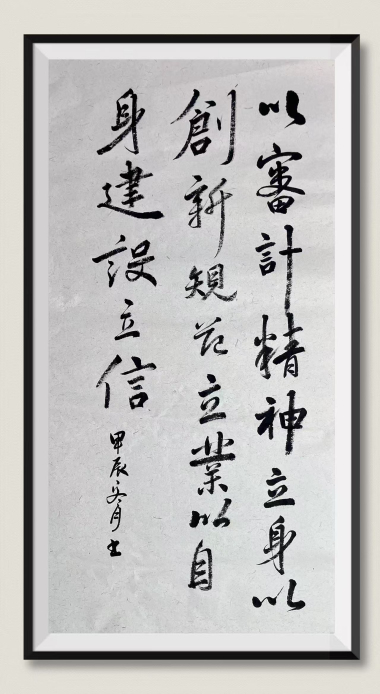 以審計精神立身以
創新規范立業以自
身建設立信
甲辰冬月士